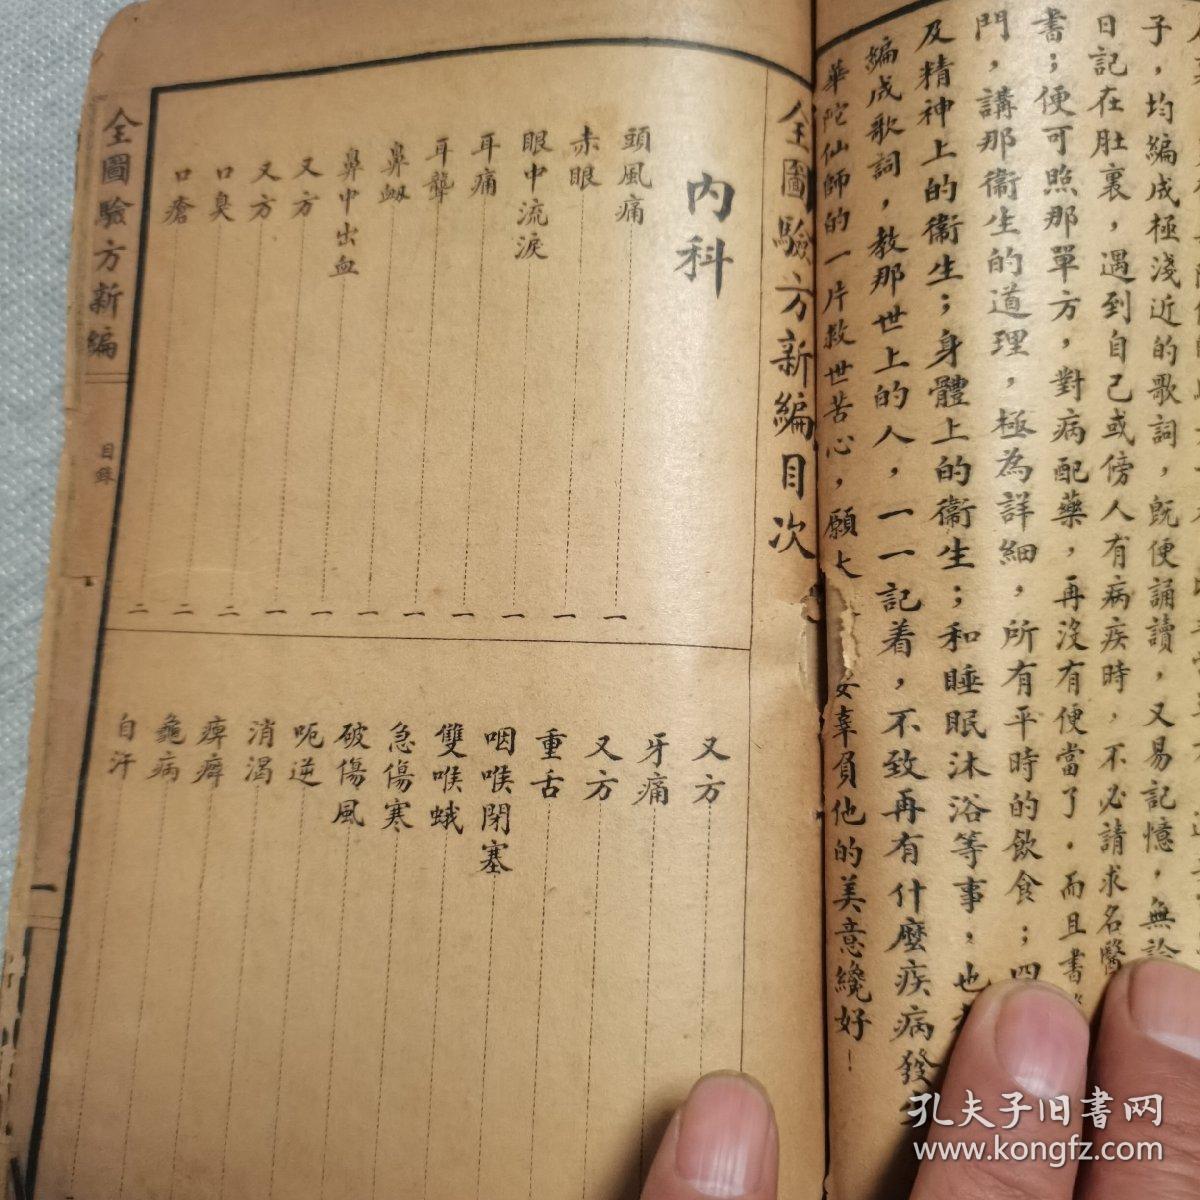 子，均編成極淺近的歌詞，既便誦讀，又易記憶，無論
日記在肚裏，遇到自己或傍人有病疾時，不必請求名醫
書；便可照那單方，對病配藥，再沒有便當了．而且書
門，講那衞生的道理，極為詳細，所有平時的飲食；四
及精神上的衞生；身體上的衞生；和睡眠沐浴等事，也
編成歌詞，教那世上的人，一一記着，不致再有什麼疾病發
華陀仙師的一片救世苦心，願大
辜負他的美意纔好
全圖驗方新編目次
內科
頭風痛 一
赤眼 一
眼中流淚 一
耳痛 一
耳聾 一
鼻衂 一
鼻中出血 一
又方 一
又方 二
口臭 二
口瘡 二
又方
牙痛
又方
重舌
咽喉閉塞
雙喉蛾
急傷寒
破傷風
呃逆
消渴
痺癖
龜病
自汗
全圖驗方新編
目錄
一
孔夫子旧书网
www.kongfz.com